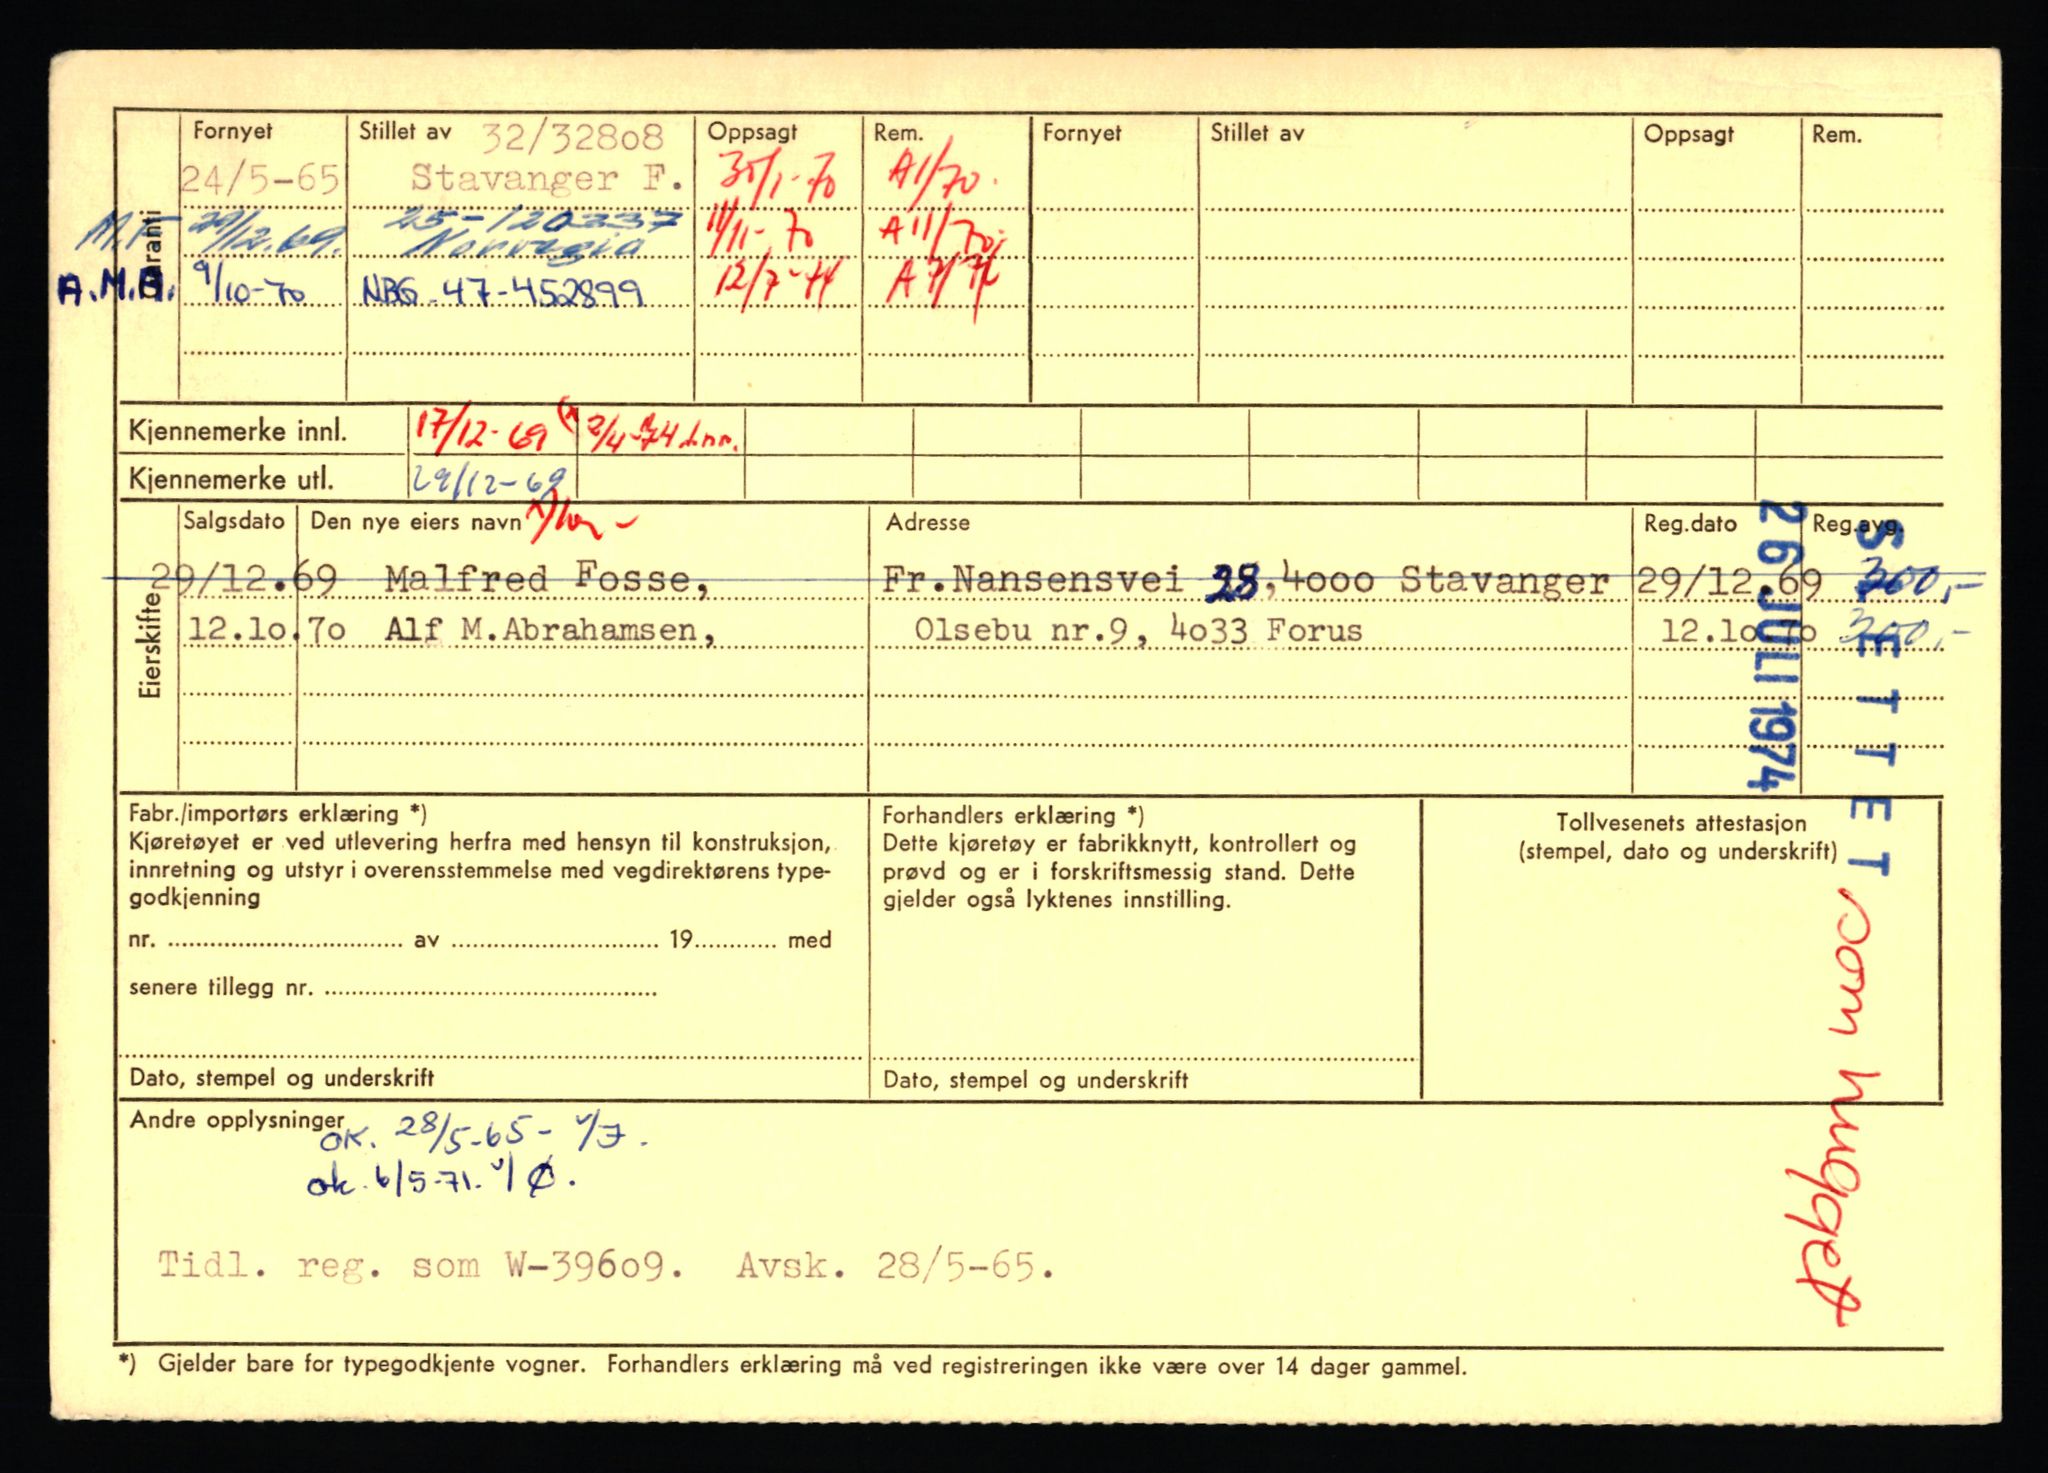 Garanti
Fornyet Stillet av 32/32808 Oppsagt Rem. Fornyet Stillet av Oppsagt Rem.
24/5-65 Stavanger F. A1/70.
M.F 29/12.69. 25-120337 Norvegia 11/11-70 A11/70.
A.M.A. 9/10-70 NBG-47-452899 12/7-74 A7/74
Kjennemerke innl. 17/12-69 2/4-74
Kjennemerke utl. 29/12-69
Eierskifte
Salgsdato Den nye eiers navn Adresse Reg.dato Reg.avg.
29/12.69 Malfred Fosse, Fr.Nansensvei 28, 4000 Stavanger 29/12.69 300,-
12.10.70 Alf M.Abrahamsen, Olsebu nr.9, 4033 Forus 12.10.70 300,-
26 JULI 1974
SLETTET
Fabr./importørs erklæring *)
Kjøretøyet er ved utlevering herfra med hensyn til konstruksjon,
innretning og utstyr i overensstemmelse med vegdirektørens type-
godkjenning
nr. av 19 med
senere tillegg nr.
Dato, stempel og underskrift
Forhandlers erklæring *)
Dette kjøretøy er fabrikknytt, kontrollert og
prøvd og er i forskriftsmessig stand. Dette
gjelder også lyktenes innstilling.
Dato, stempel og underskrift
Tollvesenets attestasjon
(stempel, dato og underskrift)
som hugget
Andre opplysninger
OK. 28/5-65-
ok. 6/5-71. v/Ø.
Tidl. reg. som W-39609. Avsk. 28/5-65.
*) Gjelder bare for typegodkjente vogner. Forhandlers erklæring må ved registreringen ikke være over 14 dager gammel.